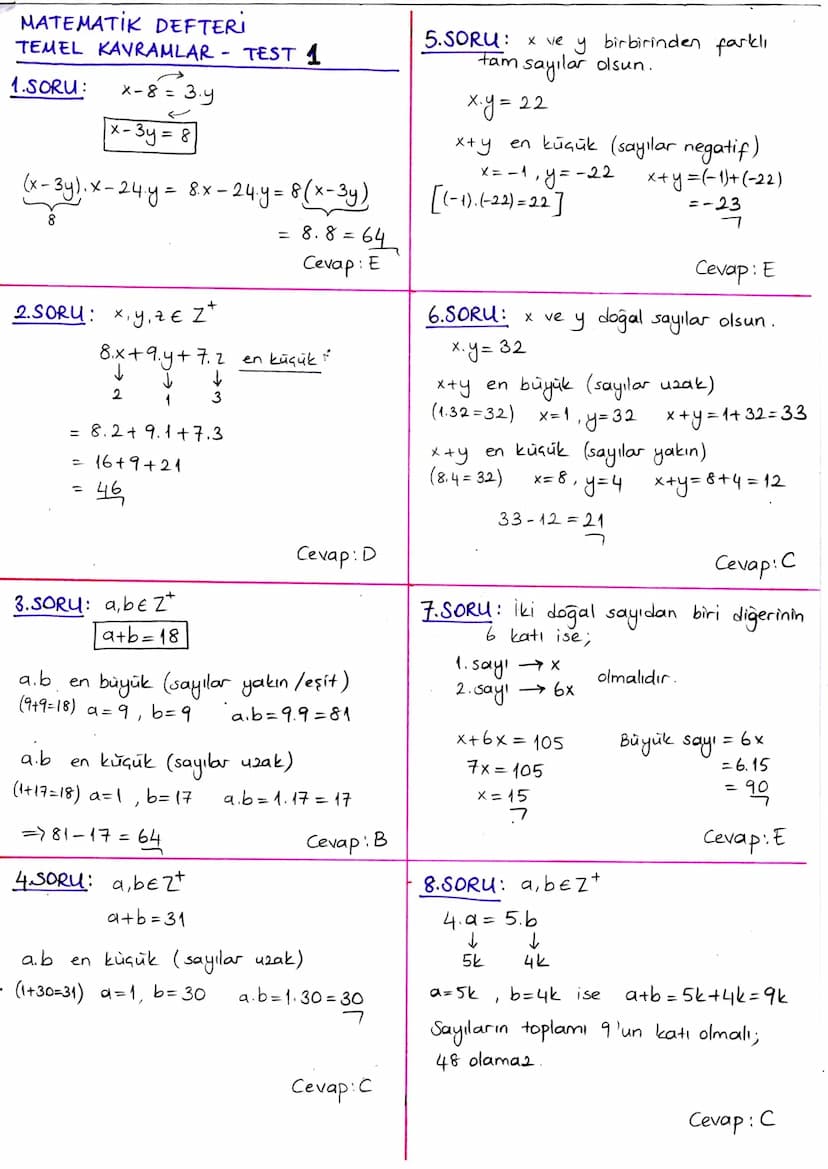 MATEMATİK DEFTERİ
TEMEL KAVRAMLAR - TEST 1
1.SORU: x-8 = 3.y
x-3y = 8
(x-3y).x-24.y = 8.x-24.y = 8(x-3y)
8
= 8.8 = 64
Cevap: E
2.SORU: x,y,z ∈ Z⁺
8.x+9.y+7.z en küçük?
↓ ↓ ↓
2 1 3
= 8.2+9.1+7.3
= 16+9+21
= 46
Cevap: D
3.SORU: a,b ∈ Z⁺
a+b = 18
a.b en büyük (sayılar yakın/eşit)
(9+9=18) a=9, b=9 a.b=9.9=81
a.b en küçük (sayılar uzak)
(1+17=18) a=1, b=17 a.b=1.17=17
⇒ 81-17 = 64
Cevap: B
4.SORU: a,b∈Z⁺
a+b=31
a.b en küçük (sayılar uzak)
(1+30=31) a=1, b=30 a.b=1.30=30
Cevap: C
5.SORU: x ve y birbirinden farklı
tam sayılar olsun.
x.y = 22
x+y en küçük (sayılar negatif)
x=-1, y=-22 x+y=(-1)+(-22)
[(-1).(-22)=22] =-23
Cevap: E
6.SORU: x ve y doğal sayılar olsun.
x.y = 32
x+y en büyük (sayılar uzak)
(1.32=32) x=1, y=32 x+y=1+32=33
x+y en küçük (sayılar yakın)
(8.4=32) x=8, y=4 x+y=8+4=12
33-12=21
Cevap: C
7.SORU: İki doğal sayıdan biri diğerinin
6 katı ise;
1. sayı → x olmalıdır.
2. sayı → 6x
x+6x = 105 Büyük sayı = 6x
7x = 105 = 6.15
x = 15 = 90
Cevap: E
8.SORU: a,b∈Z⁺
4.a = 5.b
↓ ↓
5k 4k
a=5k, b=4k ise a+b=5k+4k=9k
Sayıların toplamı 9'un katı olmalı;
48 olamaz.
Cevap: C